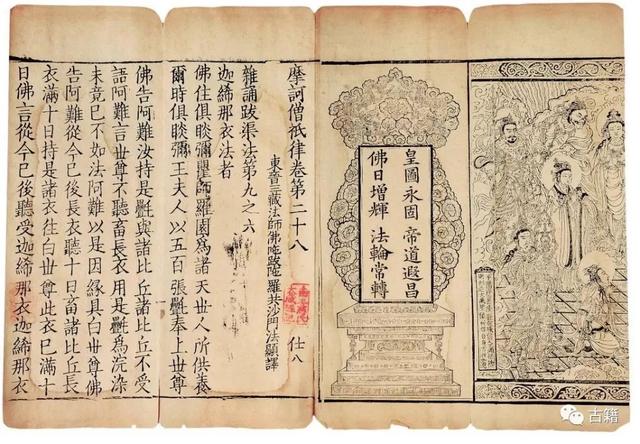 皇圖永固 帝道遐昌
佛日增輝 法輪常轉
摩訶僧祇律卷第二十八 仕八
東晉三藏法師佛陀跋陀羅共沙門法顯譯
雜誦跋渠法第九之六
迦絺那衣法者
佛住俱睒彌瞿師羅園為諸天世人所供養
爾時俱睒彌王夫人以五百張氎奉上世尊
佛告阿難汝持是氎與諸比丘諸比丘不受
語阿難言世尊不聽畜長衣用是氎為浣染
未竟已不如法阿難以是因緣具白世尊佛
告阿難從今已後長衣聽十日畜諸比丘長
衣滿十日持是諸衣往白世尊此衣已滿十
日佛言從今已後聽受迦絺那衣迦絺那衣
古籍